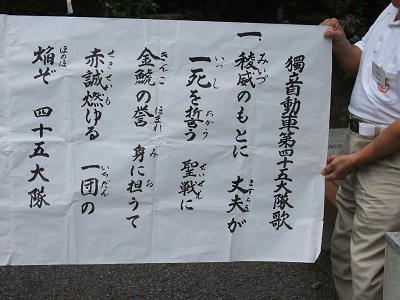 獨立自動車第四十五大隊歌
一、稜威のもとに 丈夫が
一死を誓う 聖戦に
金鯱の誉 身に担うて
赤誠燃ゆる 一団の
焔ぞ 四十五大隊